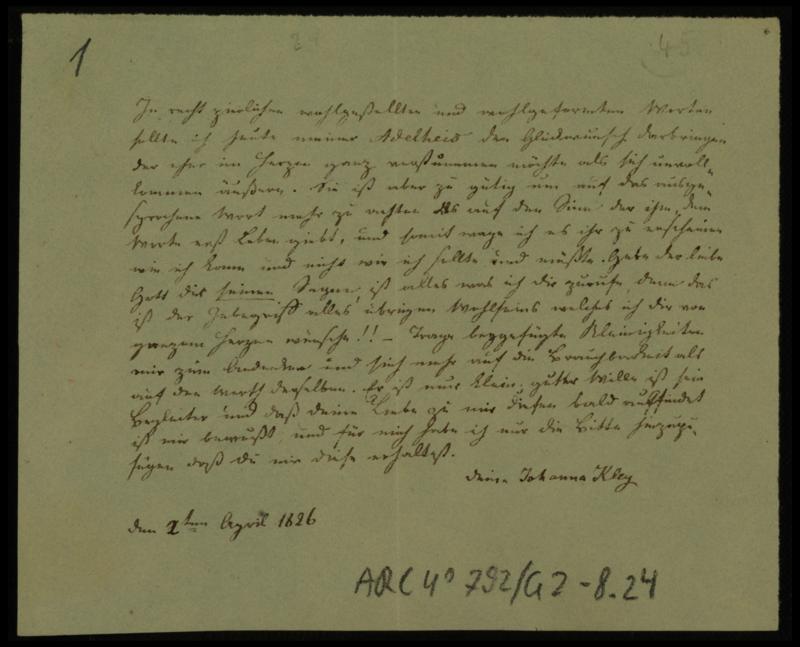 1
29
45
In recht zierlichen wohlgestellten und wohlgeformten Worten
sollte ich heute meiner Adelheid den Glückwunsch darbringen
der eher im Herzen ganz verstummen möchte als sich unvoll-
kommen äußern. Sie ist aber zu gütig um auf das ausge-
sprochene Wort mehr zu achten als auf den Sinn der ihm, dem
Worte erst Leben giebt, und somit wage ich es ihr zu erscheinen
wie ich kann und nicht wie ich sollte und müßte. Gebe der liebe
Gott dir seinen Segen, ist alles was ich dir zurufe, denn das
ist der Inbegriff alles übrigen Wohlseins welches ich dir von
ganzem Herzen wünsche!! – Trage beygefügte Kleinigkeiten
mir zum Andenken und sieh mehr auf die Brauchbarkeit als
auf den Werth derselben. Er ist nur klein, guter Wille ist sein
Begleiter und daß deine Liebe zu mir diesen bald auffindet
ist mir bewußt, und für mich habe ich nur die Bitte hinzuzu-
fügen daß du mir diese erhaltest.
Deine Johanna Kley
den 2ten April 1826
ARC 4° 792/G2-8.24